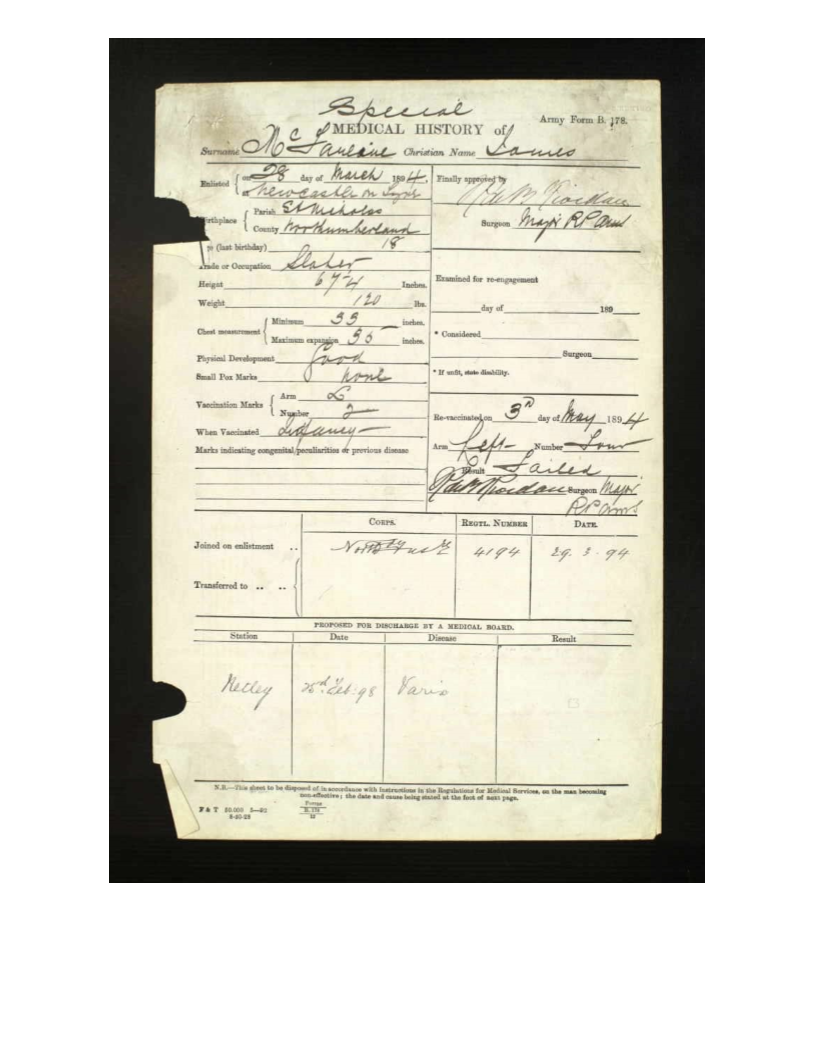 Special
Army Form B. 178.
MEDICAL HISTORY of
Surname Christian Name James
Enlisted { on 28 day of March 1894. Finally approved by
at Newcastle on Tyne
Birthplace { Parish St Nicholas
County Northumberland Surgeon Major
(last birthday) 18
Trade or Occupation Slater
Height 67-4 Inches. Examined for re-engagement
Weight 120 lbs. day of 189
Chest measurement { Minimum 33 inches.
Maximum expansion 35 inches. * Considered
Physical Development Good Surgeon
Small Pox Marks None * If unfit, state disability.
Vaccination Marks { Arm L
Number 2 Re-vaccinated on 3rd day of May 1894
When Vaccinated Infancy Arm Left Number Four
Marks indicating congenital peculiarities or previous disease
Result Failed
Surgeon Major
CORPS. REGTL. NUMBER DATE.
Joined on enlistment .. 4194 29. 3. 94
Transferred to .. .. {
PROPOSED FOR DISCHARGE BY A MEDICAL BOARD.
Station Date Disease Result
Netley Feb. 98 Varix
N.B.—This sheet to be disposed of in accordance with instructions in the Regulations for Medical Services, on the man becoming
non-effective; the date and cause being stated at the foot of next page.